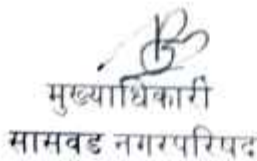 मुख्याधिकारी
सासवड नगरपरिषद